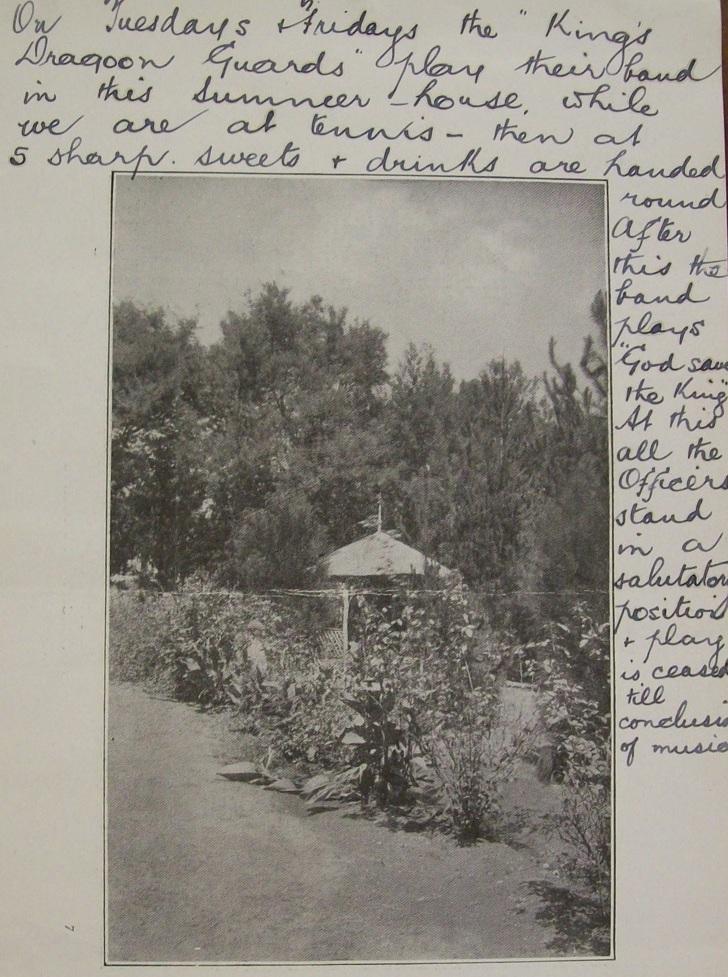 On Tuesdays & Fridays the "King's
Dragoon Guards" play their band
in this summer-house, while
we are at tennis - then at
5 sharp. sweets + drinks are handed
round
After
this the
band
plays
"God save
the King"
At this
all the
Officers
stand
in a
salutatory
position
+ play
is ceased
till
conclusion
of music
7